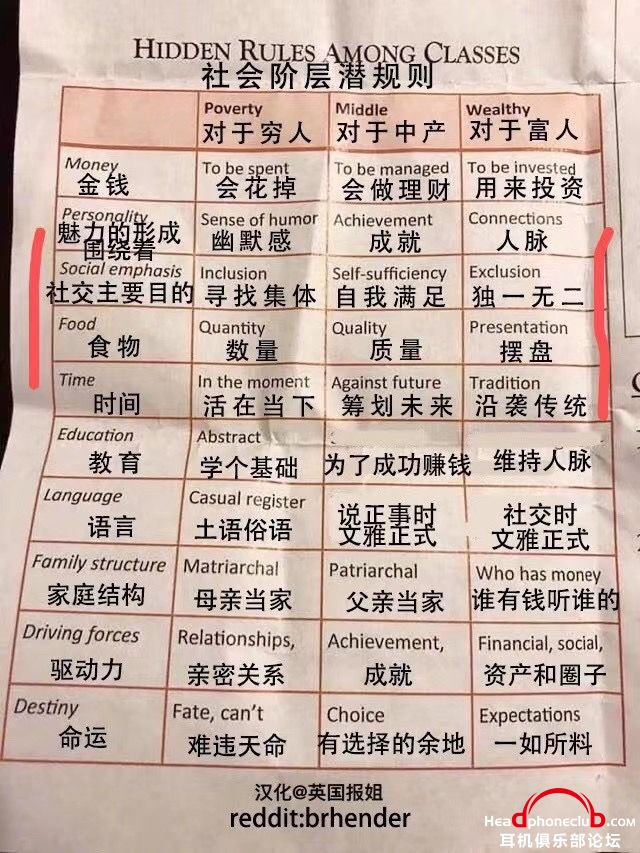 HIDDEN RULES AMONG CLASSES
社会阶层潜规则
Poverty Middle Wealthy
对于穷人 对于中产 对于富人
Money To be spent To be managed To be invested
金钱 会花掉 会做理财 用来投资
Personality Sense of humor Achievement Connections
魅力的形成 幽默感 成就 人脉
围绕着
Social emphasis Inclusion Self-sufficiency Exclusion
社交主要目的 寻找集体 自我满足 独一无二
Food Quantity Quality Presentation
食物 数量 质量 摆盘
Time In the moment Against future Tradition
时间 活在当下 筹划未来 沿袭传统
Education Abstract
教育 学个基础 为了成功赚钱 维持人脉
Language Casual register 说正事时 社交时
语言 土语俗语 文雅正式 文雅正式
Family structure Matriarchal Patriarchal Who has money
家庭结构 母亲当家 父亲当家 谁有钱听谁的
Driving forces Relationships, Achievement, Financial, social,
驱动力 亲密关系 成就 资产和圈子
Destiny Fate, can't Choice Expectations
命运 难违天命 有选择的余地 一如所料
汉化@英国报姐
reddit:brhender
Headphoneclub.com
耳机俱乐部论坛